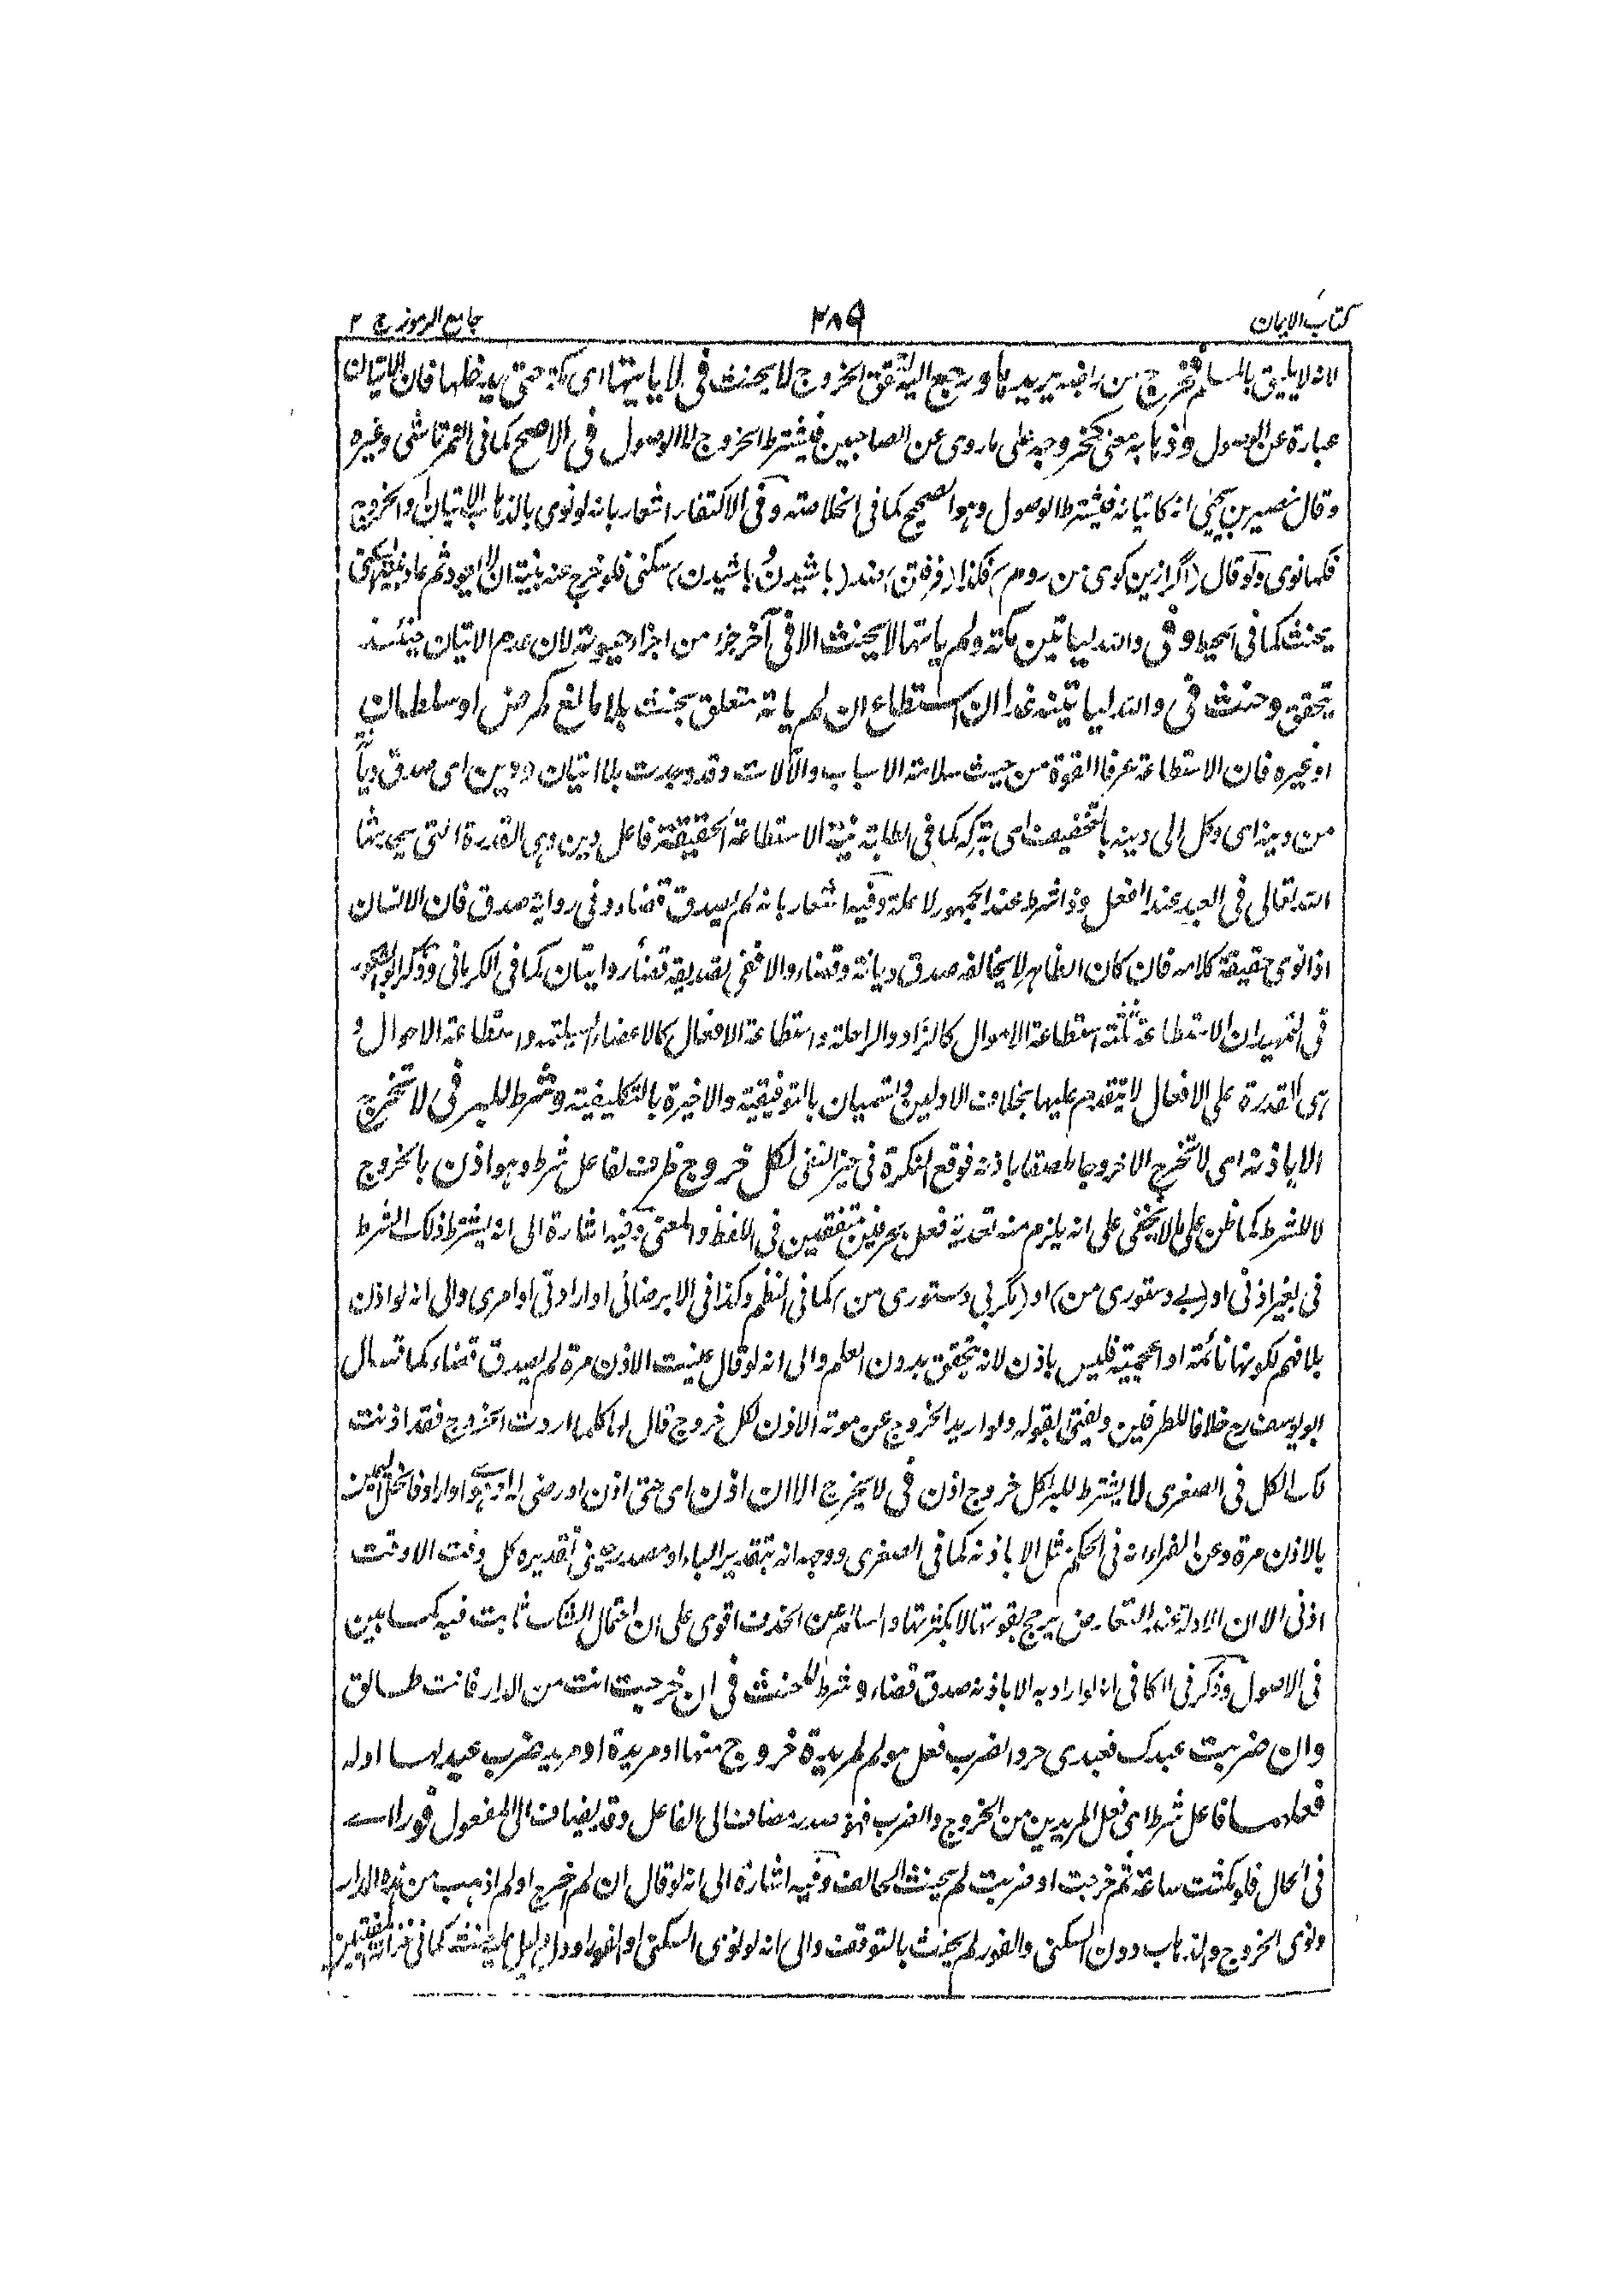 كتاب الايمان
٢٨٩
جامع الرموز ج ٢
لانه لا يليق بالمسلم فخرج من ربضه يريدها ورجع اليه تحقق الخروج لا يحنث في لا ياتيها اى مكة حتى يدخلها فان الاتيان
عبارة عن الوصول وذهابه معنى كخروجه على ما روى عن الصاحبين فيشترط الخروج لا الوصول في الاصح كما في التمرتاشى وغيره
وقال نصير بن يحيى انه كاتيانه فيشترط الوصول وهو الصحيح كما في الخلاصة وفي الاكتفاء اشعار بانه لو نوى بالذهاب الاتيان او الخروج
فكما نوى ولو قال (اگر ازين كوى من روم) فكذا (رفتن) (باشيدن باشيدن) سكنى فلو خرج عنه بنية ان لا يعود ثم عاد
يحنث كما في المحيط وفي والله لياتين مكة ولم ياتها لا يحنث الا في آخر جزء من اجزاء حيوته لان عدم الاتيان حينئذ
يتحقق وحنث في والله لياتينه غدا ان استطاع ان لم ياته متعلق بحنث بلا مانع كمرض او سلطان
او غيره فان الاستطاعة عرفا القوة من حيث سلامة الاسباب والآلات وقد وجدت بلا اتيان ودين اى صدق ديانة
من دينه اى وكل الى دينه بالتخفيف اى تركه كما في الطلبة نية الاستطاعة الحقيقة فاعل دين وهى القدرة التى يحدثها
الله تعالى في العبد عند الفعل وذا شرط عند الجمهور لا علة وفيه اشعار بانه لم يصدق قضاء وفي رواية صدق فان الانسان
اذا نوى حقيقة كلامه فان كان الظاهر لا يخالفه صدق ديانة وقضاء والا ففى تصديقه قضاء روايتان كما في الكرمانى وذكر ابو الشكور
في التمهيد ان الاستطاعة ثلثة استطاعة الاموال كالزاد والراحلة واستطاعة الافعال كالاعضاء السليمة واستطاعة الاحوال و
هى القدرة على الافعال لا يتقدم عليها بخلاف الاوليين وتسميان بالتوفيقية والاخيرة بالتكليفية وشرط للبر في لا تخرج
الا باذنه اى لا تخرج الا خروجا ملصقا باذنه فوقع النكرة في حيز النفى لكل خروج ظرف لفاعل شرط وهو اذن بالخروج
لا للشرط كما ظن على ما لا يخفى على انه يلزم منه تعدية فعل بحرفين متفقين في اللفظ والمعنى وفيه اشارة الى انه يشترط ذلك الشرط
في بغير اذنى او (بے دستورى من) او (مگر بى دستورى من) كما في النظم وكذا في الا برضائى او ارادتى او امرى والى انه لو اذن
بلا فهم لكونها نائمة او اعجمية فليس باذن لانه تحقق بدون العلم والى انه لو قال عنيت الاذن مرة لم يصدق قضاء كما قال
ابو يوسف رح خلافا للطرفين ويفتى بقوله ولو اريد الخروج عن مؤنة الاذن لكل خروج قال لها كلما اردت الخروج فقد اذنت
لك الكل في الصغرى لا يشترط للبر لكل خروج اذن في لا يخرج الا ان اذن اى حتى اذن او رضى او اراد فانحل اليمين
بالاذن مرة وعن الفراء انه في الحكم مثل الا باذنه كما في الصغرى ووجهه انه بتقدير الباء او مصدر حينى تقديره كل وقت الا وقت
اذنى الا ان الادلة عند التعارض يرجح بقوتها لا بكثرتها والسالم عن الحذف اقوى على ان احتمال الشك ثابت فيه كما بين
في الاصول وذكر في الكافى انه لو اراد به الا باذنه صدق قضاء وشرط للحنث في ان خرجت انت من الدار فانت طالق
وان ضربت عبدك فعبدى حر والضرب فعل مولم لمريدة خروج منها او مريدة او مريد ضرب عبد لها او له
فعلهما فاعل شرط اى فعل المريدين من الخروج والضرب فهو مصدر مضاف الى الفاعل وقد يضاف الى المفعول فورا اے
في الحال فلو مكثت ساعة ثم خرجت او ضربت لم يحنث الحالف وفيه اشارة الى انه لو قال ان لم اخرج او لم اذهب من هذه الدار
ونوى الخروج والذهاب دون السكنى والفور لم يحنث بالتوقف والى انه لو نوى السكنى او الفور او دل الدليل يحنث كما في خزانة المفتين